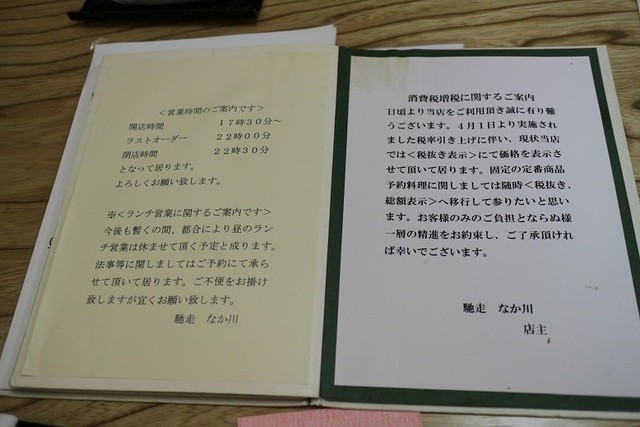 <営業時間のご案内です>
開店時間　１７時３０分～
ラストオーダー　２２時００分
閉店時間　２２時３０分
となって居ります。
よろしくお願い致します。
※<ランチ営業に関するご案内です>
今後も暫くの間、都合により昼のラン
チ営業は休ませて頂く予定と成ります。
法事等に関しましてはご予約にて承ら
せて頂いて居ります。ご不便をお掛け
致しますが宜くお願い致します。
馳走　なか川
消費税増税に関するご案内
日頃より当店をご利用頂き誠に有り難
うございます。４月１日より実施され
ました税率引き上げに伴い、現状当店
では<税抜き表示>にて価格を表示さ
せて頂いて居ります。固定の定番商品
予約料理に関しましては随時<税抜き、
総額表示>へ移行して参りたいと思い
ます。お客様のみのご負担とならぬ様
一層の精進をお約束し、ご了承頂けれ
ば幸いでございます。
馳走　なか川
店主